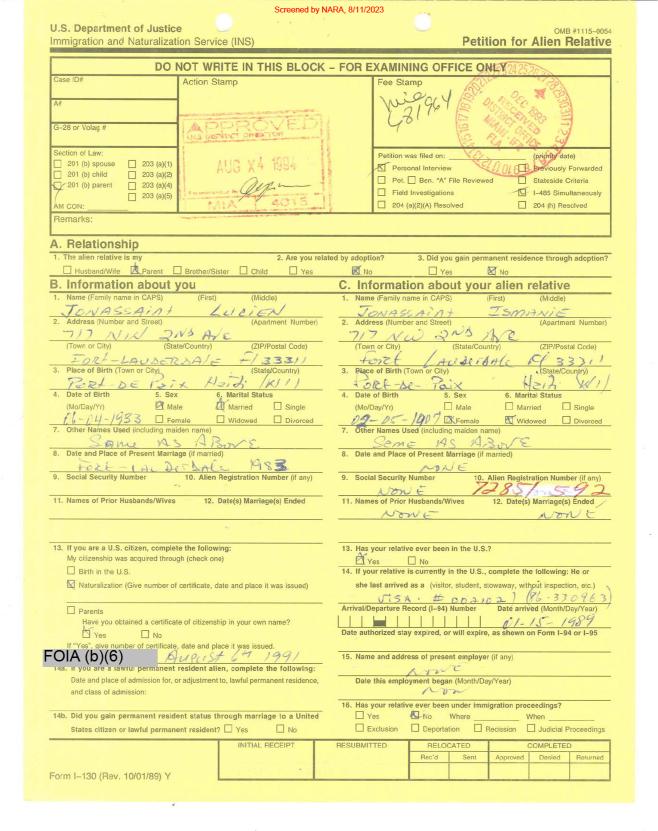 Screened by NARA, 8/11/2023
U.S. Department of Justice
Immigration and Naturalization Service (INS)
OMB #1115-0054
Petition for Alien Relative
DO NOT WRITE IN THIS BLOCK – FOR EXAMINING OFFICE ONLY
Case ID#
Action Stamp
Fee Stamp
A#
G-28 or Volag #
APPROVED
AUG X4 1994
MIA 4015
DEC 1993
RECEIVED
DISTRICT OFFICE
MIAMI
FLA.
Section of Law:
201 (b) spouse 203 (a)(1)
201 (b) child 203 (a)(2)
201 (b) parent 203 (a)(4)
203 (a)(5)
AM CON:
Petition was filed on: (priority date)
Personal Interview Previously Forwarded
Pet. Ben. "A" File Reviewed Stateside Criteria
Field Investigations I-485 Simultaneously
204 (a)(2)(A) Resolved 204 (h) Resolved
Remarks:
A. Relationship
1. The alien relative is my 2. Are you related by adoption? 3. Did you gain permanent residence through adoption?
Husband/Wife Parent Brother/Sister Child Yes No Yes No
B. Information about you
1. Name (Family name in CAPS) (First) (Middle)
JONASSAINT LUCIEN
2. Address (Number and Street) (Apartment Number)
717 NW 2ND AVE
(Town or City) (State/Country) (ZIP/Postal Code)
FORT-LAUDERDALE Fl 33311
3. Place of Birth (Town or City) (State/Country)
PORT-DE PAIX Haiti
4. Date of Birth 5. Sex 6. Marital Status
(Mo/Day/Yr) Male Married Single
Female Widowed Divorced
7. Other Names Used (including maiden name)
Same AS ABOVE
8. Date and Place of Present Marriage (if married)
1983
9. Social Security Number 10. Alien Registration Number (if any)
11. Names of Prior Husbands/Wives 12. Date(s) Marriage(s) Ended
13. If you are a U.S. citizen, complete the following:
My citizenship was acquired through (check one)
Birth in the U.S.
Naturalization (Give number of certificate, date and place it was issued)
Parents
Have you obtained a certificate of citizenship in your own name?
Yes No
If "Yes", give number of certificate, date and place it was issued.
FOIA (b)(6) August 6th 1991
14a. If you are a lawful permanent resident alien, complete the following:
Date and place of admission for, or adjustment to, lawful permanent residence,
and class of admission:
14b. Did you gain permanent resident status through marriage to a United
States citizen or lawful permanent resident? Yes No
C. Information about your alien relative
1. Name (Family name in CAPS) (First) (Middle)
JONASSAINT ISMANIE
2. Address (Number and Street) (Apartment Number)
717 NW 2ND AVE
(Town or City) (State/Country) (ZIP/Postal Code)
FORT LAUDERDALE Fl 33311
3. Place of Birth (Town or City) (State/Country)
PORT-DE-PAIX Haiti
4. Date of Birth 5. Sex 6. Marital Status
(Mo/Day/Yr) Male Married Single
Female Widowed Divorced
7. Other Names Used (including maiden name)
Same AS ABOVE
8. Date and Place of Present Marriage (if married)
NONE
9. Social Security Number 10. Alien Registration Number (if any)
NONE
11. Names of Prior Husbands/Wives 12. Date(s) Marriage(s) Ended
NONE NONE
13. Has your relative ever been in the U.S.?
Yes No
14. If your relative is currently in the U.S., complete the following: He or
she last arrived as a (visitor, student, stowaway, without inspection, etc.)
VISA. # 002102 (86-330963)
Arrival/Departure Record (I-94) Number Date arrived (Month/Day/Year)
01-15-1989
Date authorized stay expired, or will expire, as shown on Form I-94 or I-95
15. Name and address of present employer (if any)
NONE
Date this employment began (Month/Day/Year)
Non
16. Has your relative ever been under immigration proceedings?
Yes No Where When
Exclusion Deportation Recission Judicial Proceedings
INITIAL RECEIPT RESUBMITTED RELOCATED COMPLETED
Rec'd Sent Approved Denied Returned
Form I-130 (Rev. 10/01/89) Y